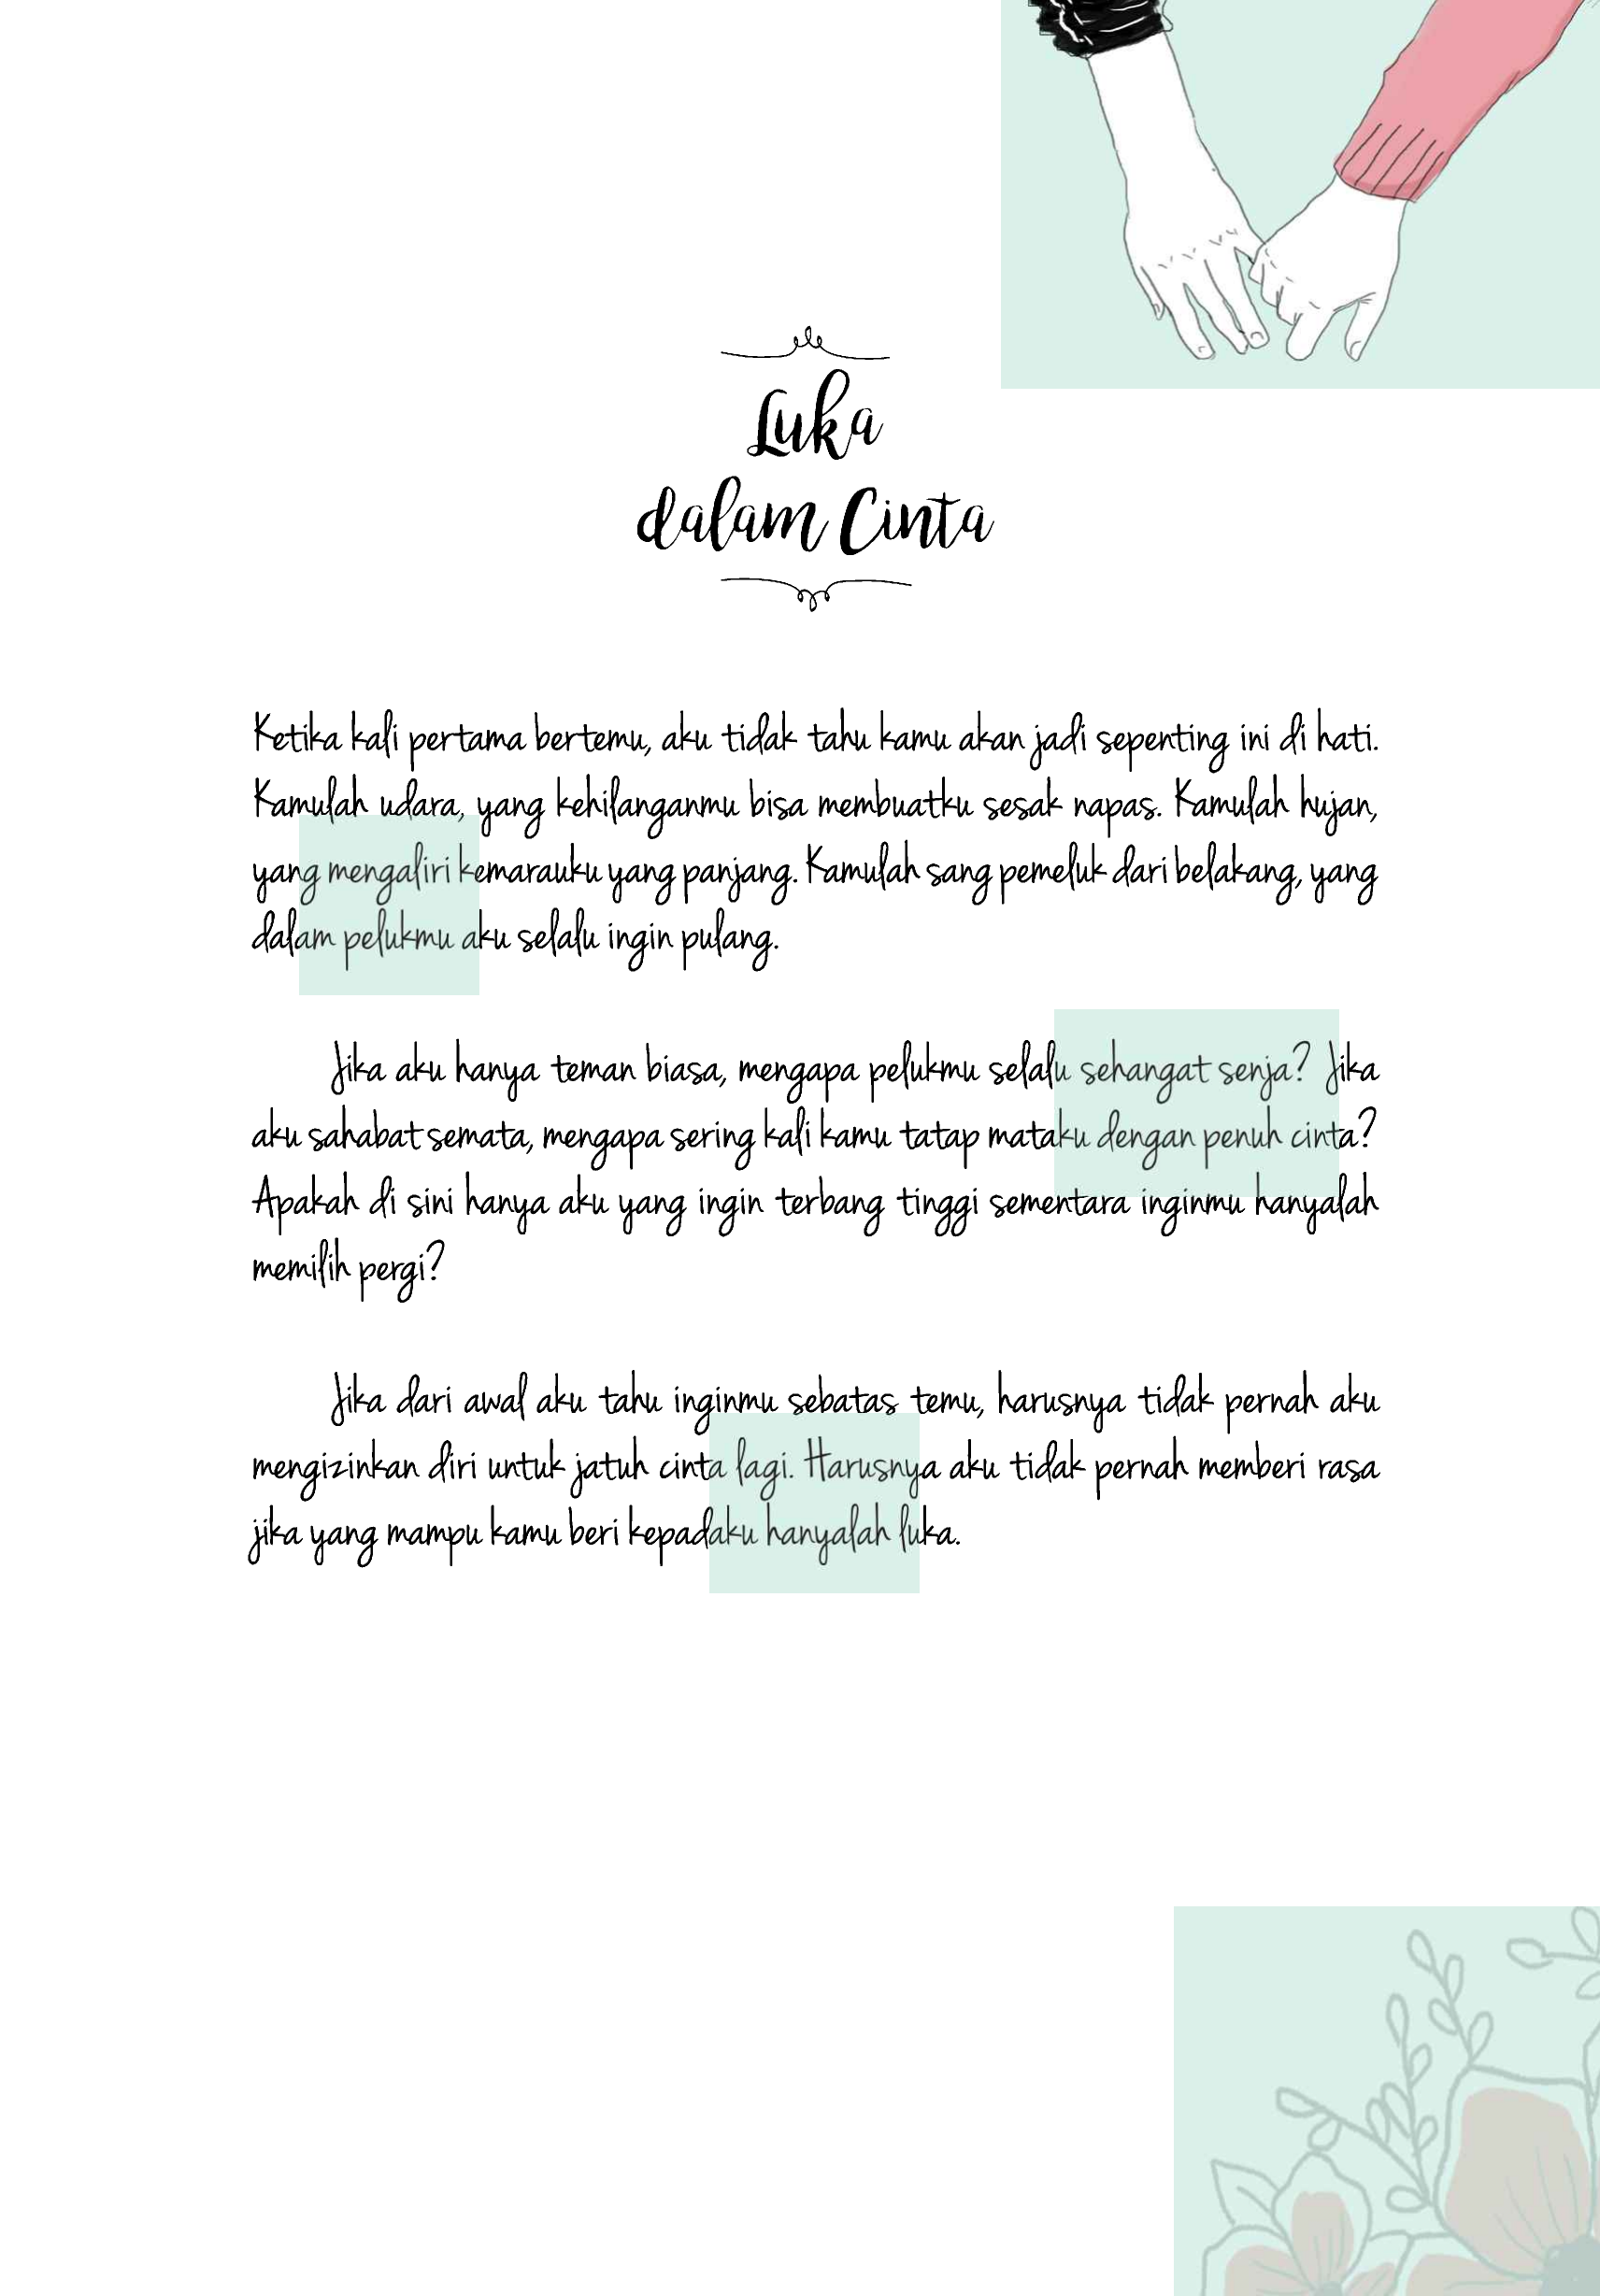 Luka
dalam Cinta
Ketika kali pertama bertemu, aku tidak tahu kamu akan jadi sepenting ini di hati.
Kamulah udara, yang kehilanganmu bisa membuatku sesak napas. Kamulah hujan,
yang mengaliri kemarauku yang panjang. Kamulah sang pemeluk dari belakang, yang
dalam pelukmu aku selalu ingin pulang.
Jika aku hanya teman biasa, mengapa pelukmu selalu sehangat senja? Jika
aku sahabat semata, mengapa sering kali kamu tatap mataku dengan penuh cinta?
Apakah di sini hanya aku yang ingin terbang tinggi sementara inginmu hanyalah
memilih pergi?
Jika dari awal aku tahu inginmu sebatas temu, harusnya tidak pernah aku
mengizinkan diri untuk jatuh cinta lagi. Harusnya aku tidak pernah memberi rasa
jika yang mampu kamu beri kepadaku hanyalah luka.